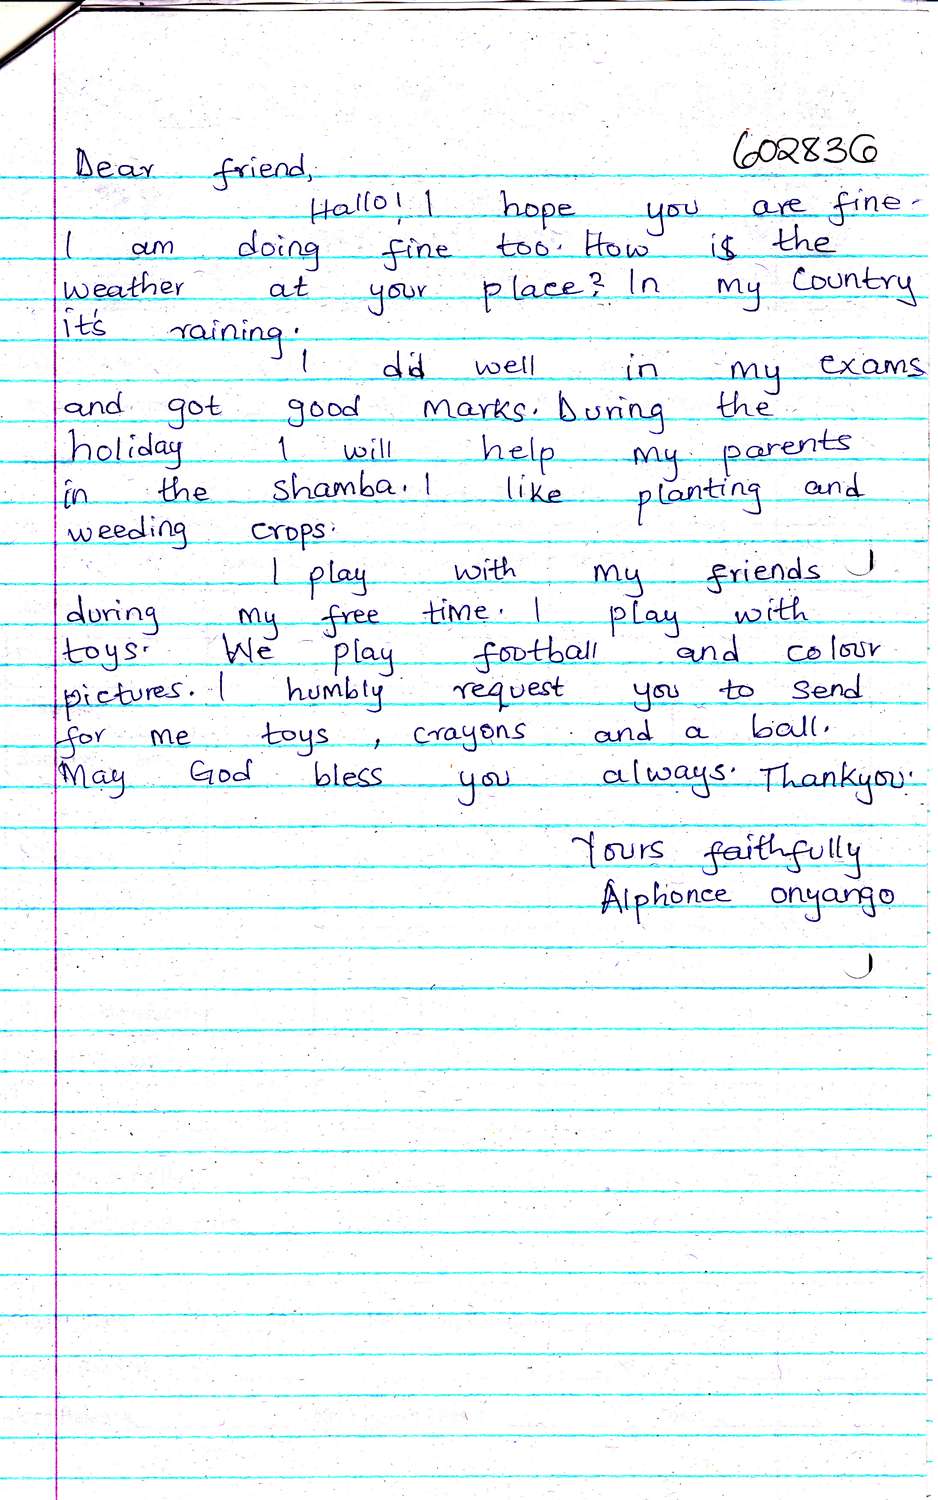 602836
Dear friend,
Hallo! I hope you are fine.
I am doing fine too. How is the
weather at your place? In my Country
it's raining.
I did well in my exams
and got good marks. During the
holiday I will help my parents
in the shamba. I like planting and
weeding crops.
I play with my friends
during my free time. I play with
toys. We play football and colour
pictures. I humbly request you to send
for me toys, crayons and a ball.
May God bless you always. Thankyou.
Yours faithfully
Alphonce onyango